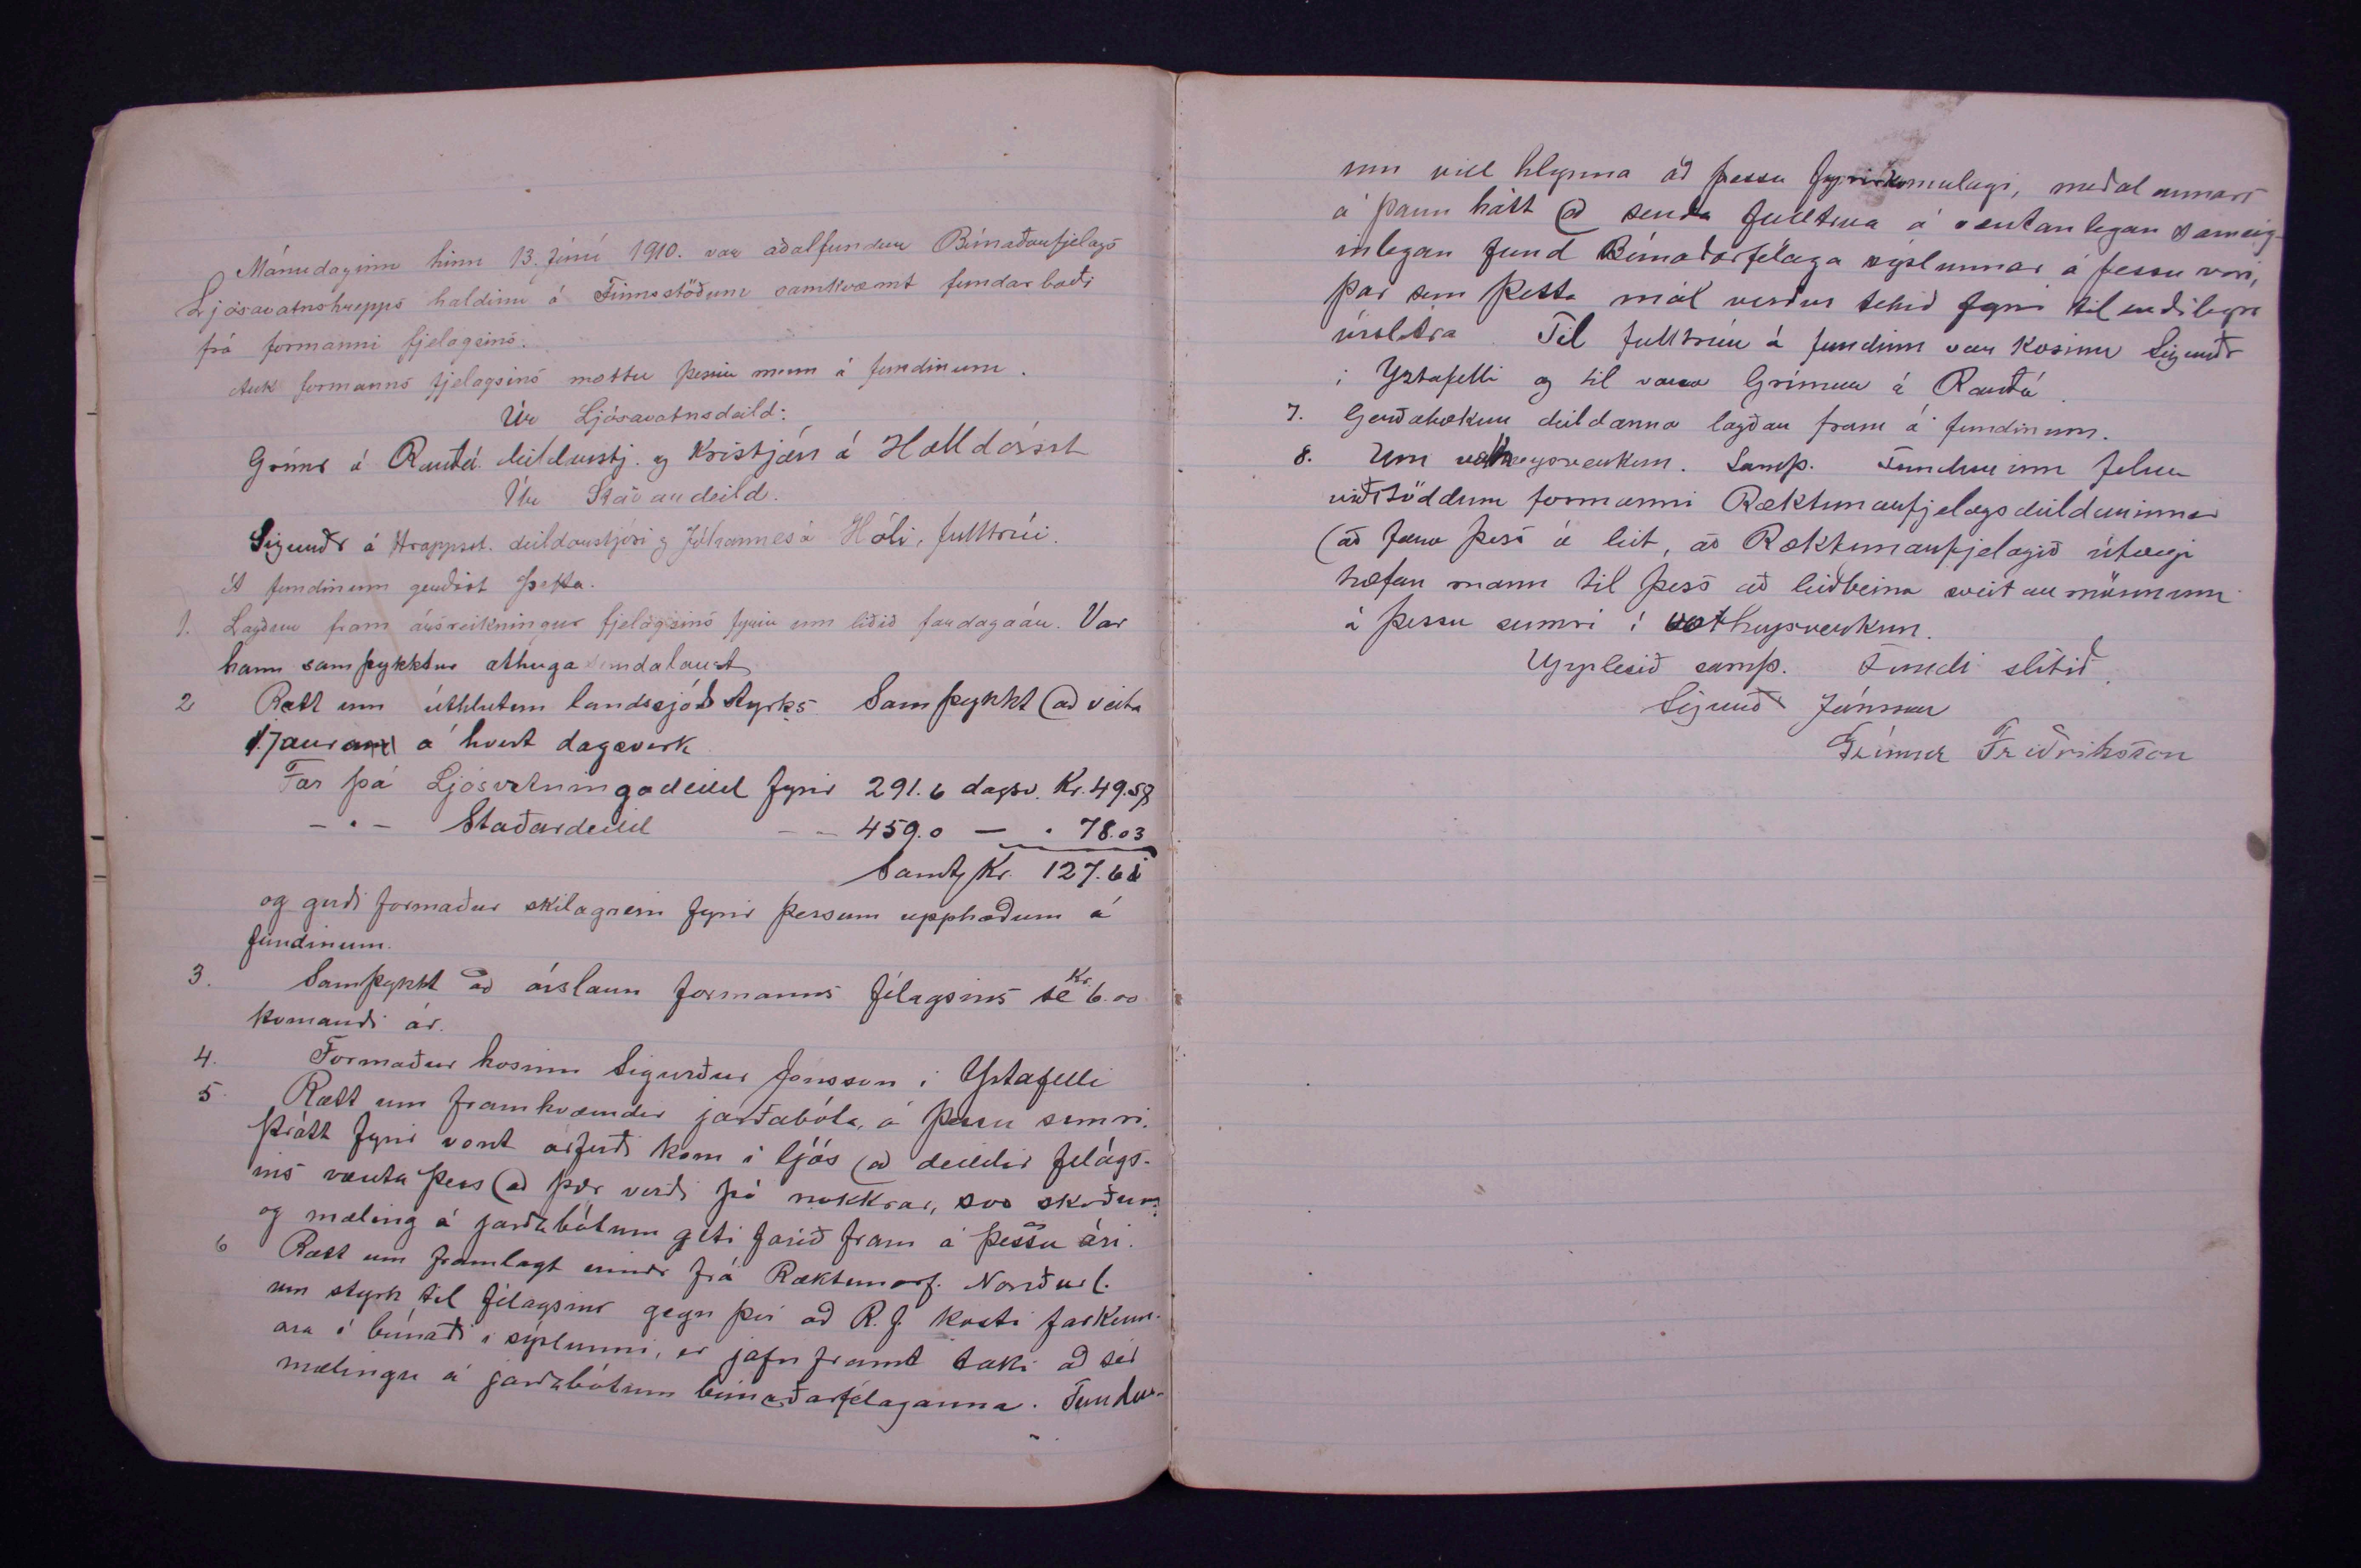 Mánudaginn hinn 13. júní 1910. var aðalfundur Búnaðarfjelags
Ljósavatnshrepps haldinn á Finnsstöðum samkvæmt fundarboði
frá formanni fjelagsins.
Auk formanns fjelagsins mættu þessir menn á fundinum.
Úr Ljósavatnsdeild:
Grímr á Rauðá deildarstj. og Kristján á Halldórsst
Úr Staðardeild.
Sigurðr á Hrappsst. deildarstjóri og Jóhannes á Hóli, fulltrúi.
Á fundinum gerðist þetta.
1. Lagður fram ársreikningur fjelagsins fyrir um liðið fardagaár. Var
hann samþykktur athugasemdalaust
2 Rætt um úthlutun landssjóðsstyrks. Samþykkt að veita
17 aura á hvert dagsverk
Fær þá Ljósvetningadeild fyrir 291.6 dagsv. Kr. 49.57
- " - Staðardeild - - 459.0 — " 78.03
Samt, Kr. 127.61
og gerði formaður skilagrein fyrir þessum upphæðum á
fundinum.
3. Samþykkt að árslaun formanns félagsins sé Kr. 6.00
komandi ár.
4. Formaður kosinn Sigurður Jónsson í Ystafelli
5. Rætt um framkvæmdir jarðabóta, á þessu sumri.
Þrátt fyrir vont árferði kom í ljós að deildir félags-
ins vænta þess að þær verði þó nokkrar, svo skoðun
og mæling á jarðabótum geti farið fram á þessu ári.
6 Rætt um framlagt erindi frá Ræktunarf. Norðurl.
um styrk til félagsins gegn því að R.f kosti farkenn-
ara í búnaði í sýslunni, er jafnframt taki að sér
mælingu á jarðabótum búnaðarfélaganna. Fundur-
inn vill hlynna að þessu fyrirkomulagi, meðal annars
á þann hátt að senda fulltrúa á væntanlegan sameig-
inlegan fund Búnaðarfélaga sýslunnar á þessu vori,
þar sem þetta mál verður tekið fyrir til endilegra
úrslitra. Til fulltrúa á fundinn var kosinn Sigurðr
í Yztafelli og til vara Grímur á Rauðá.
7. Gerðabækur deildanna lagðar fram á fundinum.
8. Um votheysverkun. Samþ. Fundurinn felur
viðstöddum formanni Ræktunarfjelagsdeildarinnar
að fara þess á leit, að Ræktunarfjelagið útvegi
hæfan mann til þess að leiðbeina sveitarmönnum
á þessu sumri í votheysverkun.
Upplesið samþ. Fundi slitið.
Sigurðr Jónsson
Grímur Friðriksson